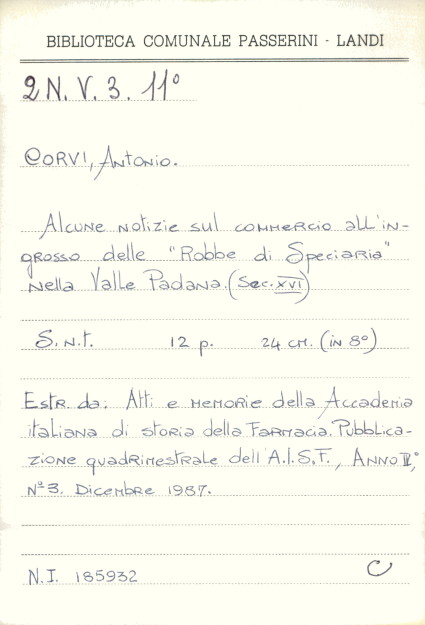 BIBLIOTECA COMUNALE PASSERINI - LANDI
2 N. V. 3. 11°
CORVI, Antonio.
Alcune notizie sul commercio all'in-
grosso delle "Robbe di Speciaria"
nella Valle Padana. (Sec. XVI)
S.n.t. 12 p. 24 cm. (in 8°)
Estr. da: Atti e memorie della Accademia
italiana di storia della Farmacia. Pubblica-
zione quadrimestrale dell'A.I.S.F., Anno IV°,
N° 3. Dicembre 1987.
N.I. 185932 C